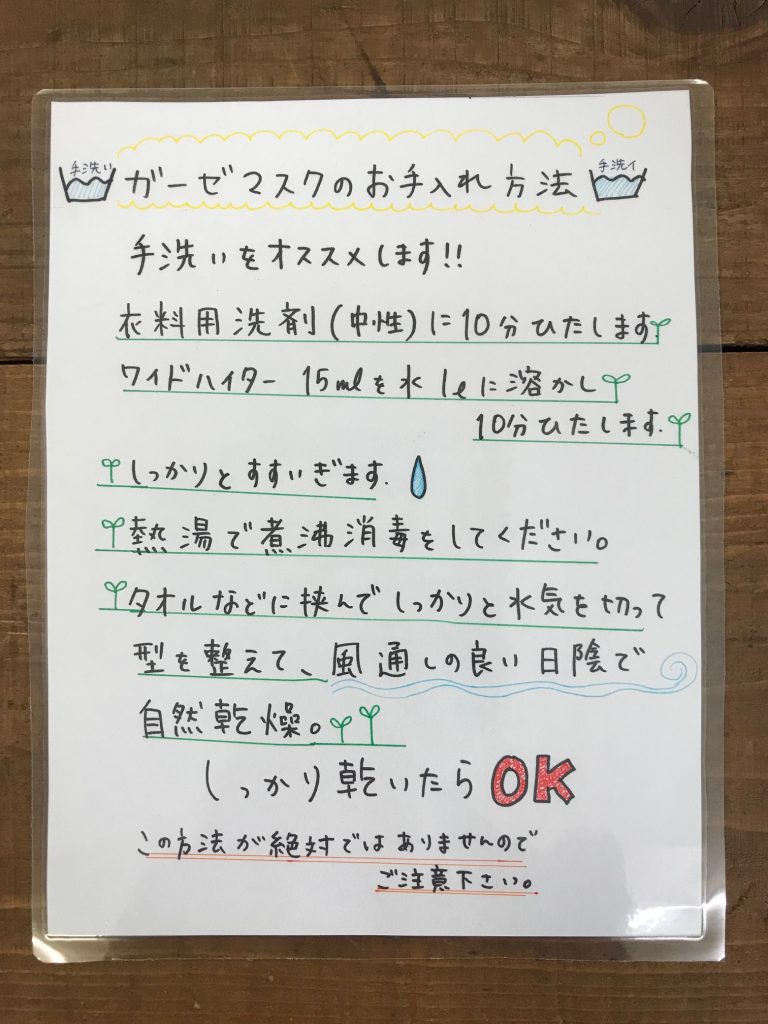 手洗い
ガーゼマスクのお手入れ方法
手洗イ
手洗いをオススメします!!
衣料用洗剤(中性)に10分ひたします
ワイドハイター 15mlを水1ℓに溶かし
10分ひたします.
しっかりとすすいぎます.
熱湯で煮沸消毒をしてください。
タオルなどに挟んでしっかりと水気を切って
型を整えて、風通しの良い日陰で
自然乾燥。
しっかり乾いたらOK
この方法が絶対ではありませんので
ご注意下さい。